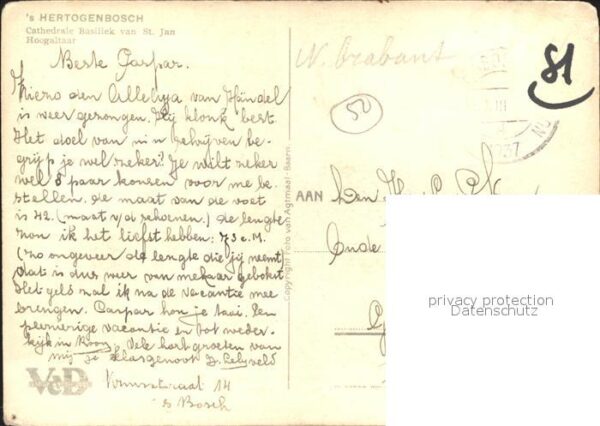 's HERTOGENBOSCH
Cathedrale Basiliek van St. Jan
Hoogaltaar
Beste Caspar.
Hierzo den Alleluja van Händel
is weer gezongen. Hij klonk best.
Het doel van m'n schrijven be-
grijp je wel zeker? Je wilt zeker
wel 3 paar kousen voor me be-
stellen. de maat van de voet
is 42. (maat v/d schoenen.) de lengte
zou ik het liefst hebben: 73 c.M.
(zo ongeveer de lengte die jij neemt)
dat is dus weer van mekaar gebokst
Het geld zal ik na de vacantie mee
brengen. Caspar hou je taai. Een
plezierige vacantie en tot weder-
kijk in Rooy. Vele hartgroeten van
mij je klasgenoot J. Lelyveld
straat 14
s Bosch
V&D
Copyright Foto van Agtmaal, Baarn
N. brabant
52
81
III
1937
AAN
Den H.
Oude
privacy protection
Datenschutz